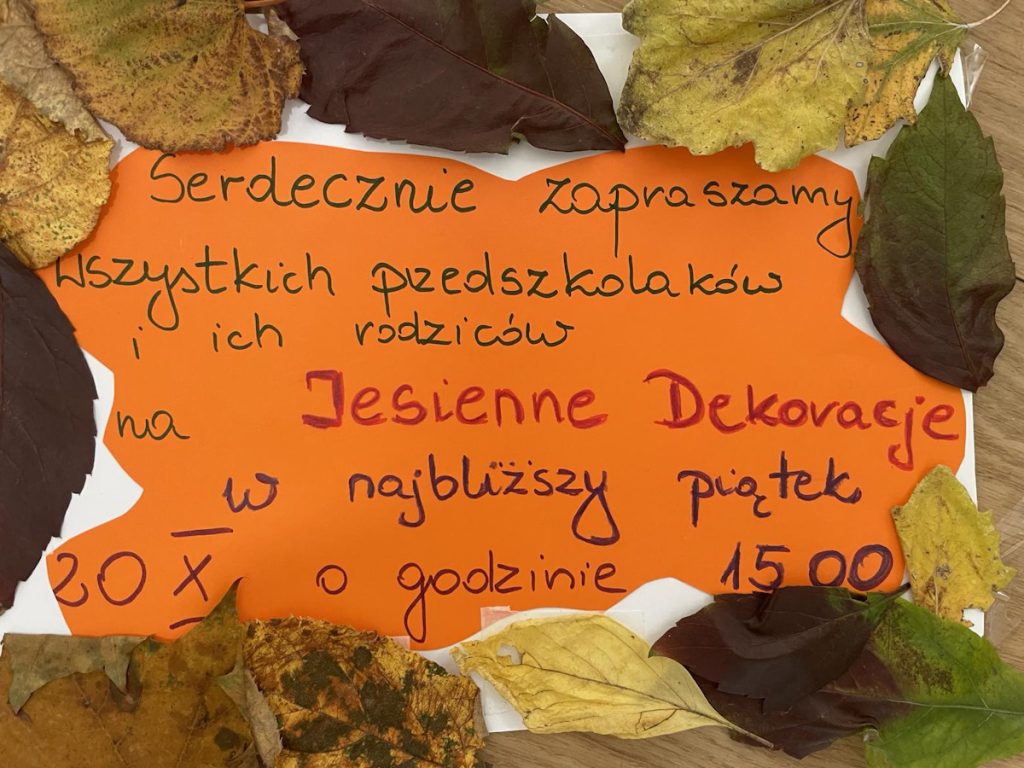 Serdecznie zapraszamy
wszystkich przedszkolaków
i ich rodziców
na Jesienne Dekoracje
w najbliższy piątek
20 X o godzinie 15 00